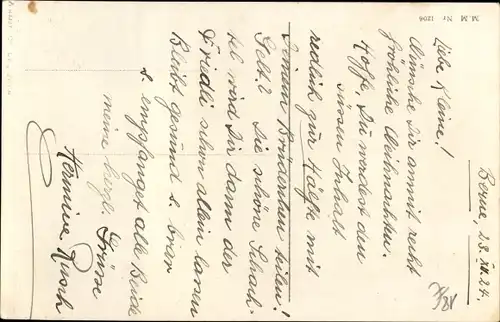 M.M Nr 1206
Berne, 23. XII. 24.
Liebe Kleine!
Wünsche Dir anmit recht
fröhliche Weihnachten.
Hoffe, Du werdest den
süssen Inhalt
redlich zur Hälfte mit
Deinem Brüderchen teilen!
Gelt? Die schöne Schach-
tel wird Dir dann der
Friedli schon allein lassen
Bleibt gesund & brav
& empfangt alle Beide
meine herzl. Grüsse
Hermine Rusch